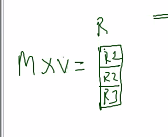 R
=
M x v = R1
R2
R3